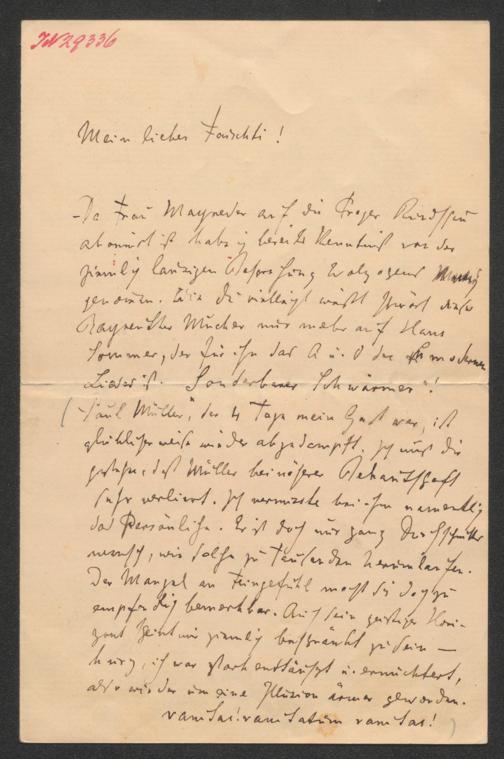 IN 29336
Mein lieber Faischti!
Da Frau Mayreder auf die Prager Rundschau
abonnirt ist habe ich bereits Kenntniß von der
ziemlich launigen Besprechung Wolzogens
genommen. Wie du vielleicht weißt schwört dieser
Bayreuther Mucker nur mehr auf Hans
Sommer, der für ihn das A u. O der modernen
Lieder ist. "Sonderbarer Schwärmer"!
("Paul Müller", der 4 Tage mein Gast war, ist
glücklicherweise wieder abgedampft. Ich muß dir
gestehen, daß Müller bei näherer Bekanntschaft
sehr verliert. Ich vermisste bei ihm namentlich
das Persönliche. Er ist doch nur ganz Durchschnitts
mensch, wie solche zu Tausenden herumlaufen.
Der Mangel an Feingefühl macht sich doch zu
empfindlich bemerkbar. Auch sein geistiger Hori-
zont scheint mir ziemlich beschränkt zu sein —
kurz, ich war stark enttäuscht u. ernüchtert,
also wieder um eine Illusion ärmer geworden.
vanitas! vanitatum vanitas!)